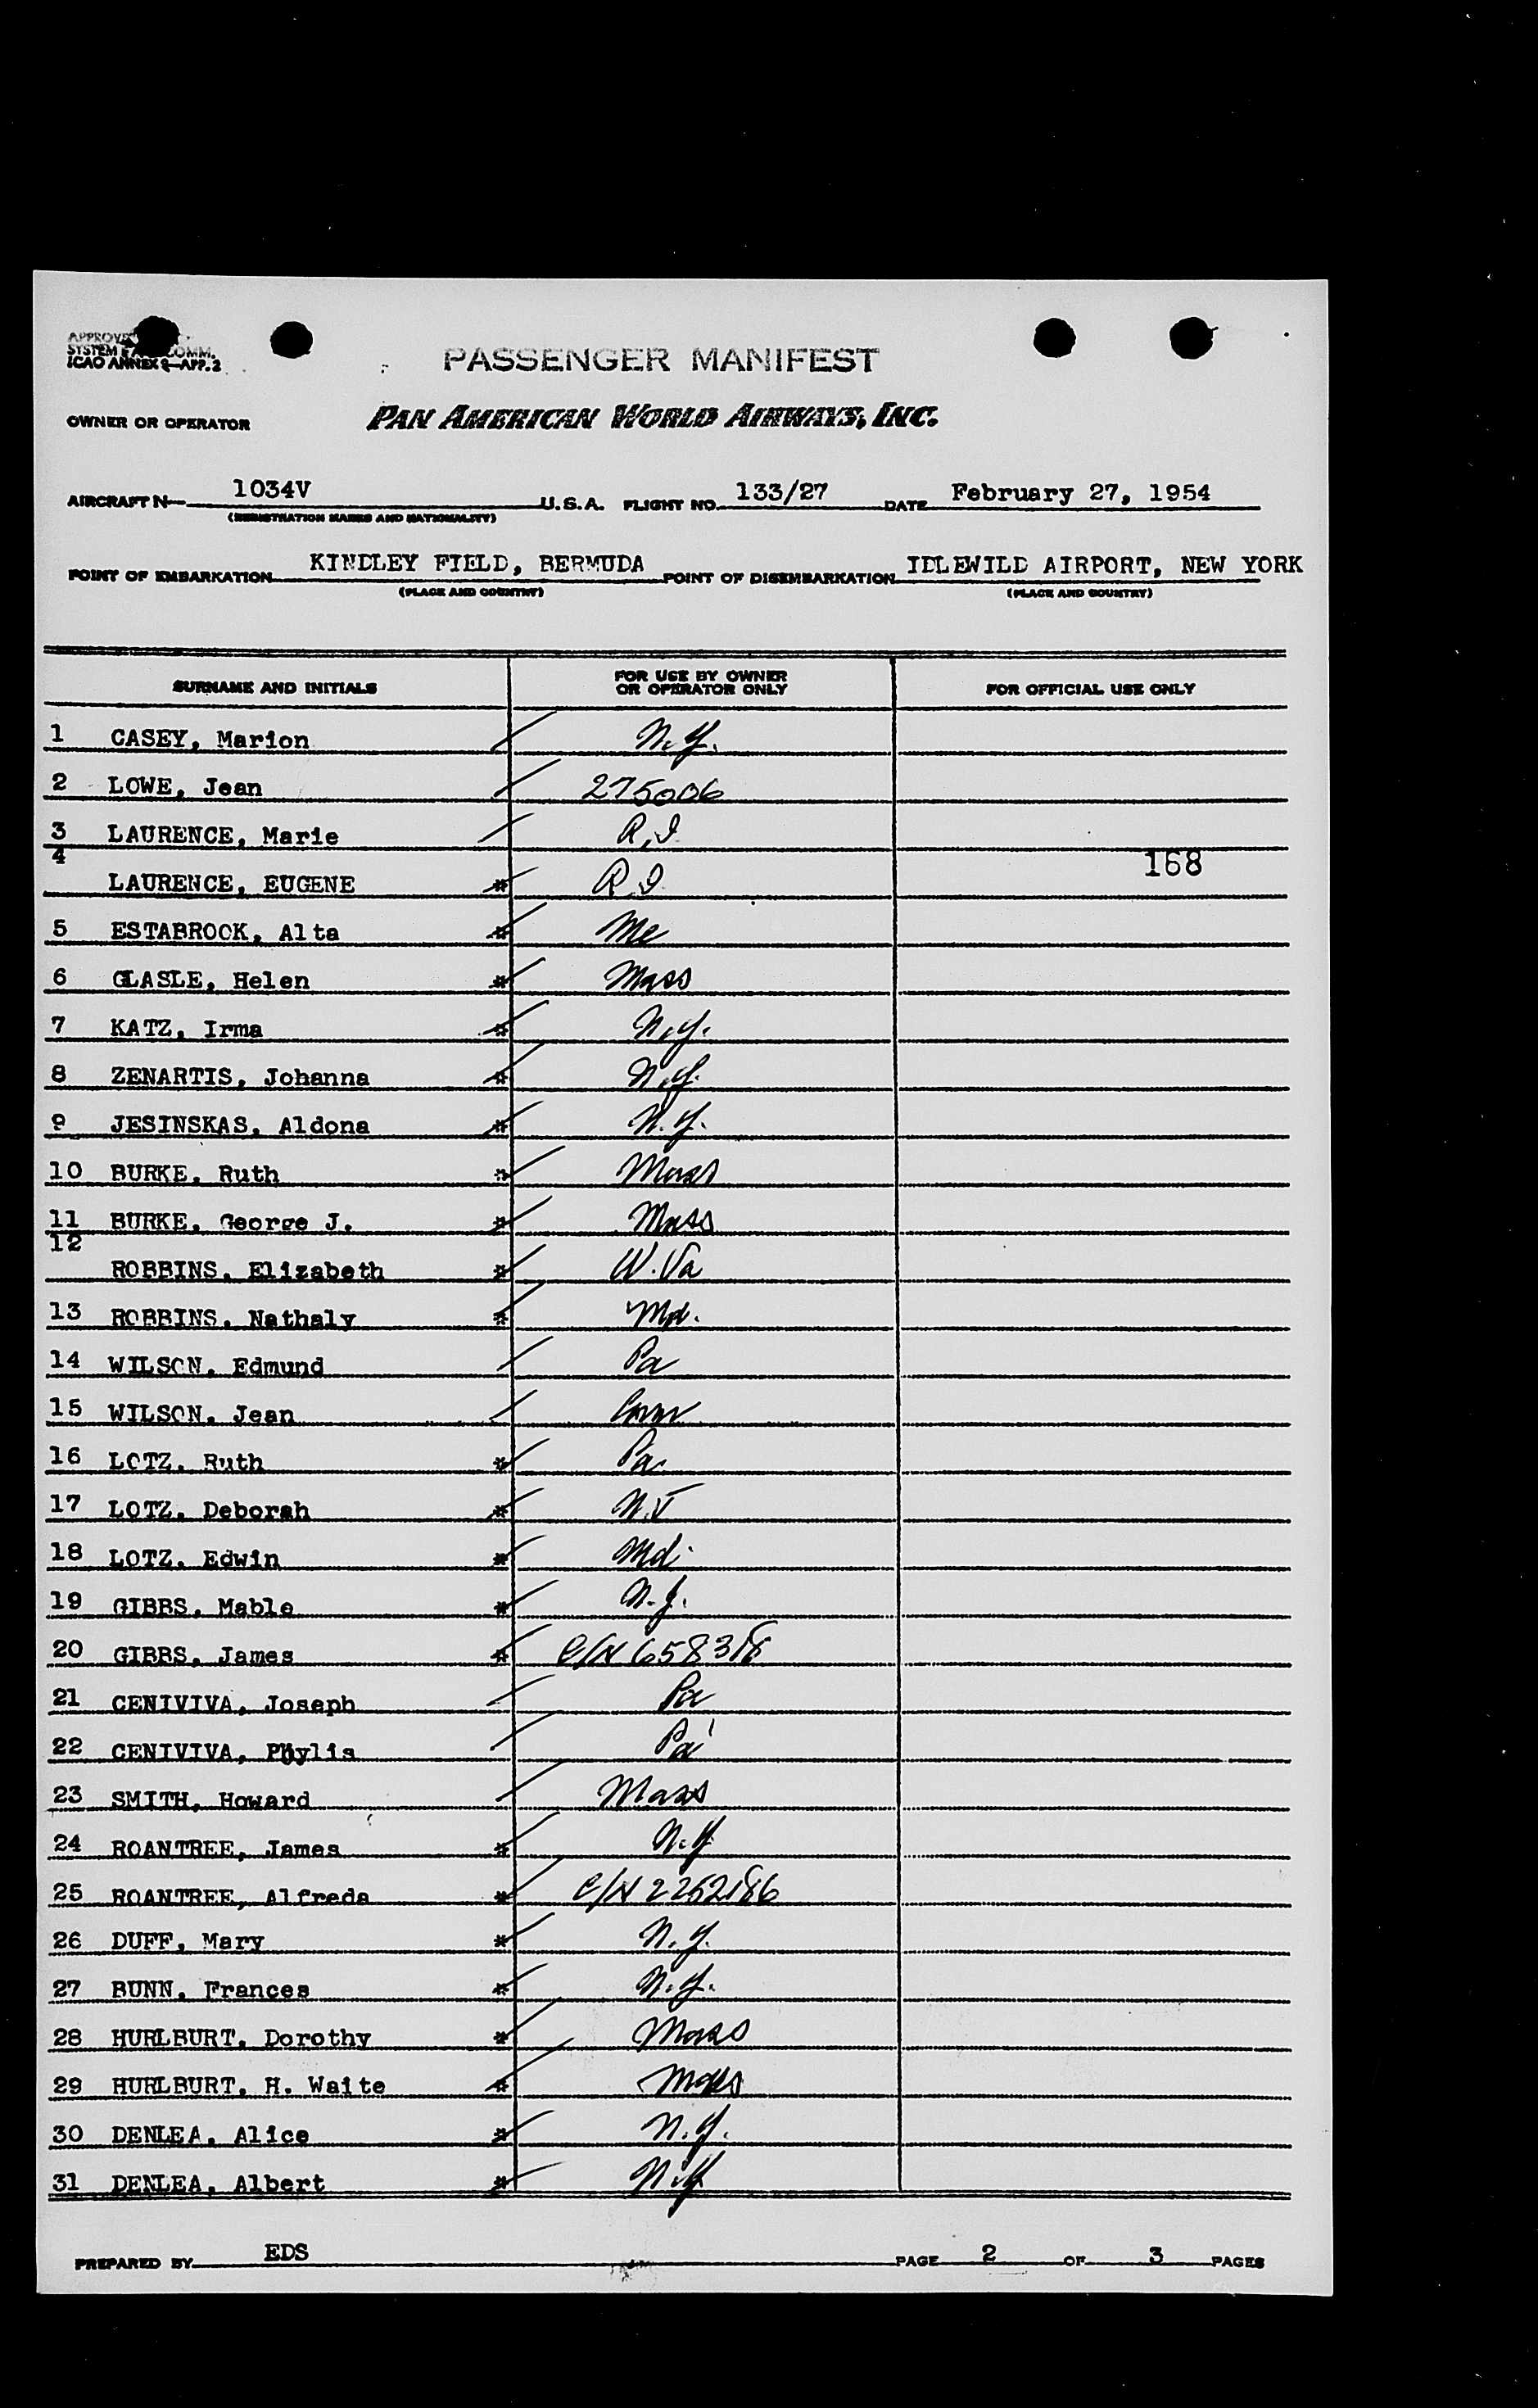 SYSTEM COMM.
ICAO ANNEX 9—APP. 2
PASSENGER MANIFEST
OWNER OR OPERATOR PAN AMERICAN WORLD AIRWAYS, INC.
AIRCRAFT N— 1034V U.S.A. FLIGHT NO. 133/27 DATE February 27, 1954
(REGISTRATION MARKS AND NATIONALITY)
POINT OF EMBARKATION KINDLEY FIELD, BERMUDA POINT OF DISEMBARKATION IDLEWILD AIRPORT, NEW YORK
(PLACE AND COUNTRY) (PLACE AND COUNTRY)
SURNAME AND INITIALS FOR USE BY OWNER OR OPERATOR ONLY FOR OFFICIAL USE ONLY
1 CASEY, Marion N.Y.
2 LOWE, Jean 275006
3 LAURENCE, Marie R.I.
4 LAURENCE, EUGENE * R.I. 168
5 ESTABROOK, Alta * Me
6 GLASLE, Helen * Mass
7 KATZ, Irma * N.Y.
8 ZENARTIS, Johanna * N.Y.
9 JESINSKAS, Aldona * N.Y.
10 BURKE, Ruth * Mass
11 BURKE, George J. * Mass
12 ROBBINS, Elizabeth * W.Va
13 ROBBINS, Nathaly * Md.
14 WILSON, Edmund Pa
15 WILSON, Jean Conn
16 LOTZ, Ruth * Pa.
17 LOTZ, Deborah * N.J
18 LOTZ, Edwin * Md.
19 GIBBS, Mable * N.J.
20 GIBBS, James * C/N 658318
21 CENIVIVA, Joseph Pa
22 CENIVIVA, Phylis Pa
23 SMITH, Howard Mass
24 ROANTREE, James * N.Y
25 ROANTREE, Alfreda * C/N 2252186
26 DUFF, Mary * N.Y.
27 BUNN, Frances * N.Y.
28 HURLBURT, Dorothy * Mass
29 HURLBURT, H. Waite * Mass
30 DENLEA, Alice * N.Y.
31 DENLEA, Albert * N.Y
PREPARED BY EDS PAGE 2 OF 3 PAGES